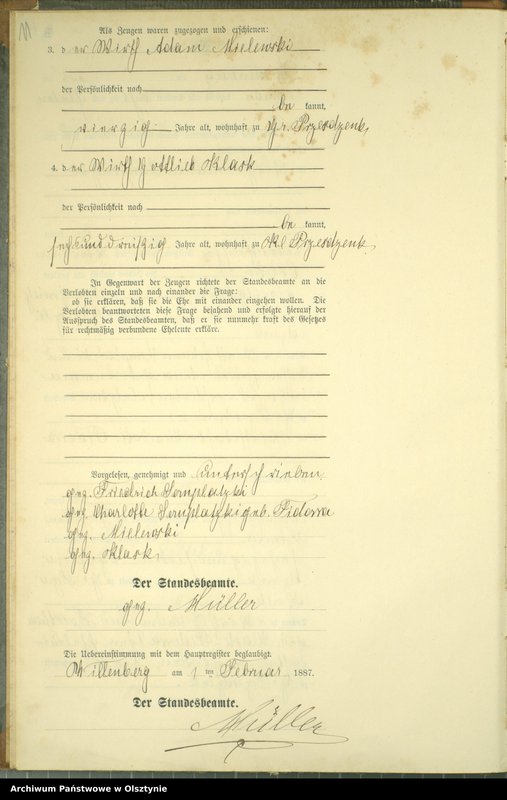 11
Als Zeugen waren zugezogen und erschienen:
3. der Wirth Adam Mielewski
der Persönlichkeit nach
be kannt,
vierzig Jahre alt, wohnhaft zu Gr. Przesdzenk,
4. der Wirth Gottlieb Klask
der Persönlichkeit nach
be kannt,
sechsunddreißig Jahre alt, wohnhaft zu Kl Przesdzenk.
In Gegenwart der Zeugen richtete der Standesbeamte an die
Verlobten einzeln und nach einander die Frage:
ob sie erklären, daß sie die Ehe mit einander eingehen wollen. Die
Verlobten beantworteten diese Frage bejahend und erfolgte hierauf der
Ausspruch des Standesbeamten, daß er sie nunmehr kraft des Gesetzes
für rechtmäßig verbundene Eheleute erkläre.
Vorgelesen, genehmigt und unterschrieben
gez. Friedrich Samplatzki
gez. Charlotte Samplatzki geb. Fidorra
gez. Mielewski
gez. Klask.
Der Standesbeamte.
gez. Müller
Die Uebereinstimmung mit dem Hauptregister beglaubigt.
Willenberg am 1 ten Februar 1887.
Der Standesbeamte.
Müller
Archiwum Państwowe w Olsztynie